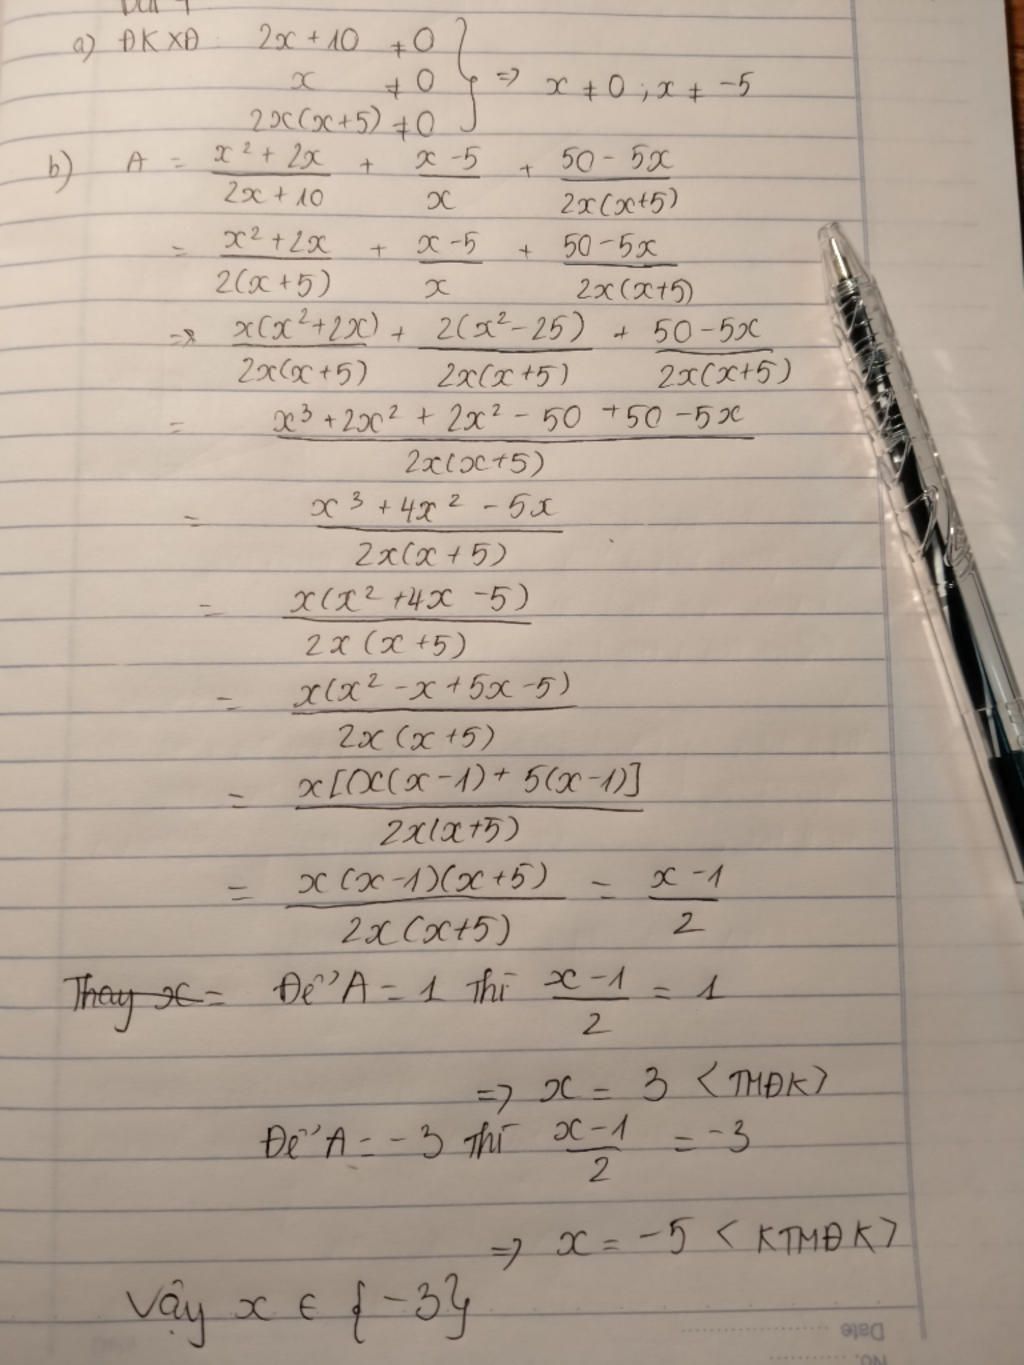 a) ĐKXĐ 2x + 10 ≠ 0
x ≠ 0
2x(x+5) ≠ 0 } => x ≠ 0 ; x ≠ -5
b) A = (x² + 2x)/(2x + 10) + (x - 5)/x + (50 - 5x)/(2x(x+5))
= (x² + 2x)/(2(x+5)) + (x - 5)/x + (50 - 5x)/(2x(x+5))
=> (x(x² + 2x))/(2x(x+5)) + (2(x² - 25))/(2x(x+5)) + (50 - 5x)/(2x(x+5))
= (x³ + 2x² + 2x² - 50 + 50 - 5x)/(2x(x+5))
= (x³ + 4x² - 5x)/(2x(x+5))
= (x(x² + 4x - 5))/(2x(x+5))
= (x(x² - x + 5x - 5))/(2x(x+5))
= (x[(x(x-1) + 5(x-1)])/(2x(x+5))
= (x(x-1)(x+5))/(2x(x+5)) = (x - 1)/2
Thay x = Để A = 1 thì (x - 1)/2 = 1
=> x = 3 <TMĐK>
Để A = -3 thì (x - 1)/2 = -3
=> x = -5 <KTMĐK>
Vậy x ∈ {-3}
Date
No.